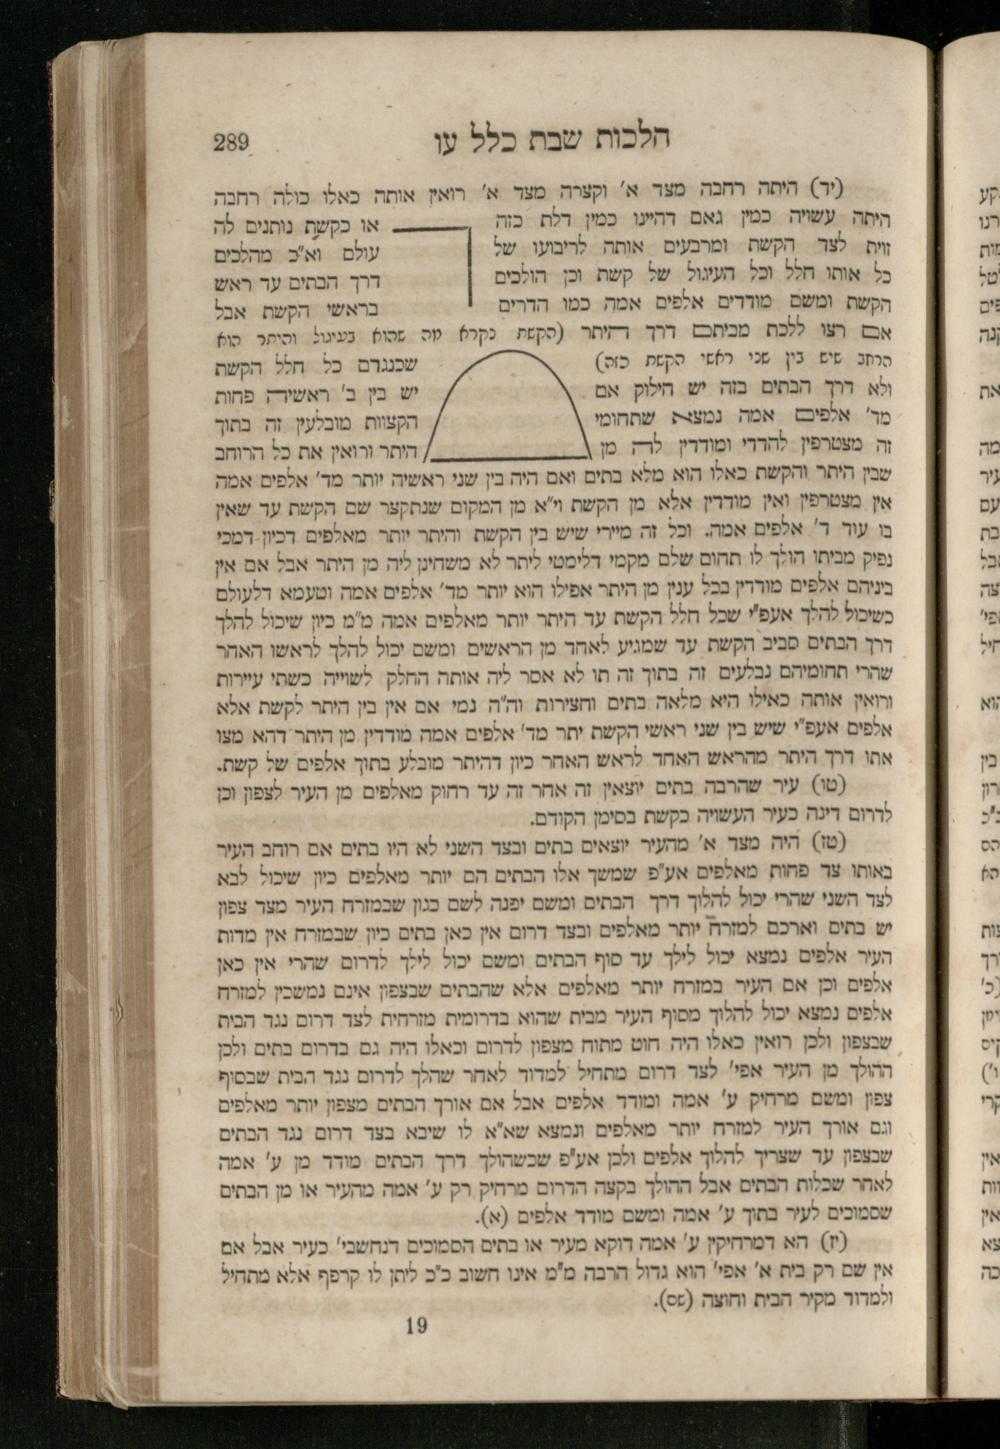 הלכות שבת כלל עו
289
(יד) היתה רחבה מצד א׳ וקצרה מצד א׳ רואין אותה כאלו כולה רחבה
היתה עשויה כמין גאם דהיינו כמין דלת כזה או כקשת נותנים לה
זוית לצד הקשת ומרבעים אותה לריבועו של עולם וא״כ מהלכים
כל אותו חלל וכל העיגול של קשת וכן הולכים דרך הבתים עד ראש
הקשת ומשם מודדים אלפים אמה כמו הדרים בראשי הקשת אבל
אם רצו ללכת מביתם דרך היתר (הקשת נקרא מה שהוא בעיגול והיתר הוא
הרחב שיש בין שני ראשי הקשת כזה) שכנגדם כל חלל הקשת
ולא דרך הבתים בזה יש חילוק אם יש בין ב׳ ראשיה פחות
מד׳ אלפים אמה נמצא שתחומי הקצוות מובלעין זה בתוך
זה מצטרפין להדדי ומודדין לה מן היתר ורואין את כל הרוחב
שבין היתר והקשת כאלו הוא מלא בתים ואם היה בין שני ראשיה יותר מד׳ אלפים אמה
אין מצטרפין ואין מודדין אלא מן הקשת וי״א מן המקום שנתקצר שם הקשת עד שאין
בו עוד ד׳ אלפים אמה. וכל זה מיירי שיש בין הקשת והיתר יותר מאלפים דכיון דמכי
נפיק מביתו הולך לו תחום שלם מקמי דלימטי ליתר לא משחינן ליה מן היתר אבל אם אין
ביניהם אלפים מודדין בכל ענין מן היתר אפילו הוא יותר מד׳ אלפים אמה וטעמא דלעולם
כשיכול להלך אעפ״י שכל חלל הקשת עד היתר יותר מאלפים אמה מ״מ כיון שיכול להלך
דרך הבתים סביב הקשת עד שמגיע לאחד מן הראשים ומשם יכול להלך לראשו האחר
שהרי תחומיהם נבלעים זה בתוך זה תו לא אסר ליה אותה החלק לשוייה כשתי עיירות
ורואין אותה כאילו היא מלאה בתים וחצירות וה״ה נמי אם אין בין היתר לקשת אלא
אלפים אעפ״י שיש בין שני ראשי הקשת יתר מד׳ אלפים אמה מודדין מן היתר דהא מצו
אתו דרך היתר מהראש האחד לראש האחר כיון דהיתר מובלע בתוך אלפים של קשת.
(טו) עיר שהרבה בתים יוצאין זה אחר זה עד רחוק מאלפים מן העיר לצפון וכן
לדרום דינה כעיר העשויה כקשת בסימן הקודם.
(טז) היה מצד א׳ מהעיר יוצאים בתים ובצד השני לא היו בתים אם רוחב העיר
באותו צד פחות מאלפים אע״פ שמשך אלו הבתים הם יותר מאלפים כיון שיכול לבא
לצד השני שהרי יכול להלוך דרך הבתים ומשם יפנה לשם כגון שבמזרח העיר מצד צפון
יש בתים וארכם למזרח יותר מאלפים ובצד דרום אין כאן בתים כיון שבמזרח אין מדות
העיר אלפים נמצא יכול לילך עד סוף הבתים ומשם יכול לילך לדרום שהרי אין כאן
אלפים וכן אם העיר במזרח יותר מאלפים אלא שהבתים שבצפון אינם נמשכין למזרח
אלפים נמצא יכול להלוך מסוף העיר מבית שהוא בדרומית מזרחית לצד דרום נגד הבית
שבצפון ולכן רואין כאלו היה חוט מתוח מצפון לדרום וכאלו היה גם בדרום בתים ולכן
ההולך מן העיר אפי׳ לצד דרום מתחיל למדוד לאחר שהלך לדרום נגד הבית שבסוף
צפון ומשם מרחיק ע׳ אמה ומודד אלפים אבל אם אורך הבתים מצפון יותר מאלפים
וגם אורך העיר למזרח יותר מאלפים ונמצא שא״א לו שיבא בצד דרום נגד הבתים
שבצפון עד שצריך להלוך אלפים ולכן אע״פ שכשהולך דרך הבתים מודד מן ע׳ אמה
לאחר שכלות הבתים אבל ההולך בקצה הדרום מרחיק רק ע׳ אמה מהעיר או מן הבתים
שסמוכים לעיר בתוך ע׳ אמה ומשם מודד אלפים (א).
(יז) הא דמרחיקין ע׳ אמה דוקא מעיר או בתים הסמוכים דנחשבי׳ כעיר אבל אם
אין שם רק בית א׳ אפי׳ הוא גדול הרבה מ״מ אינו חשוב כ״כ ליתן לו קרפף אלא מתחיל
ולמדוד מקיר הבית וחוצה (שם).
19